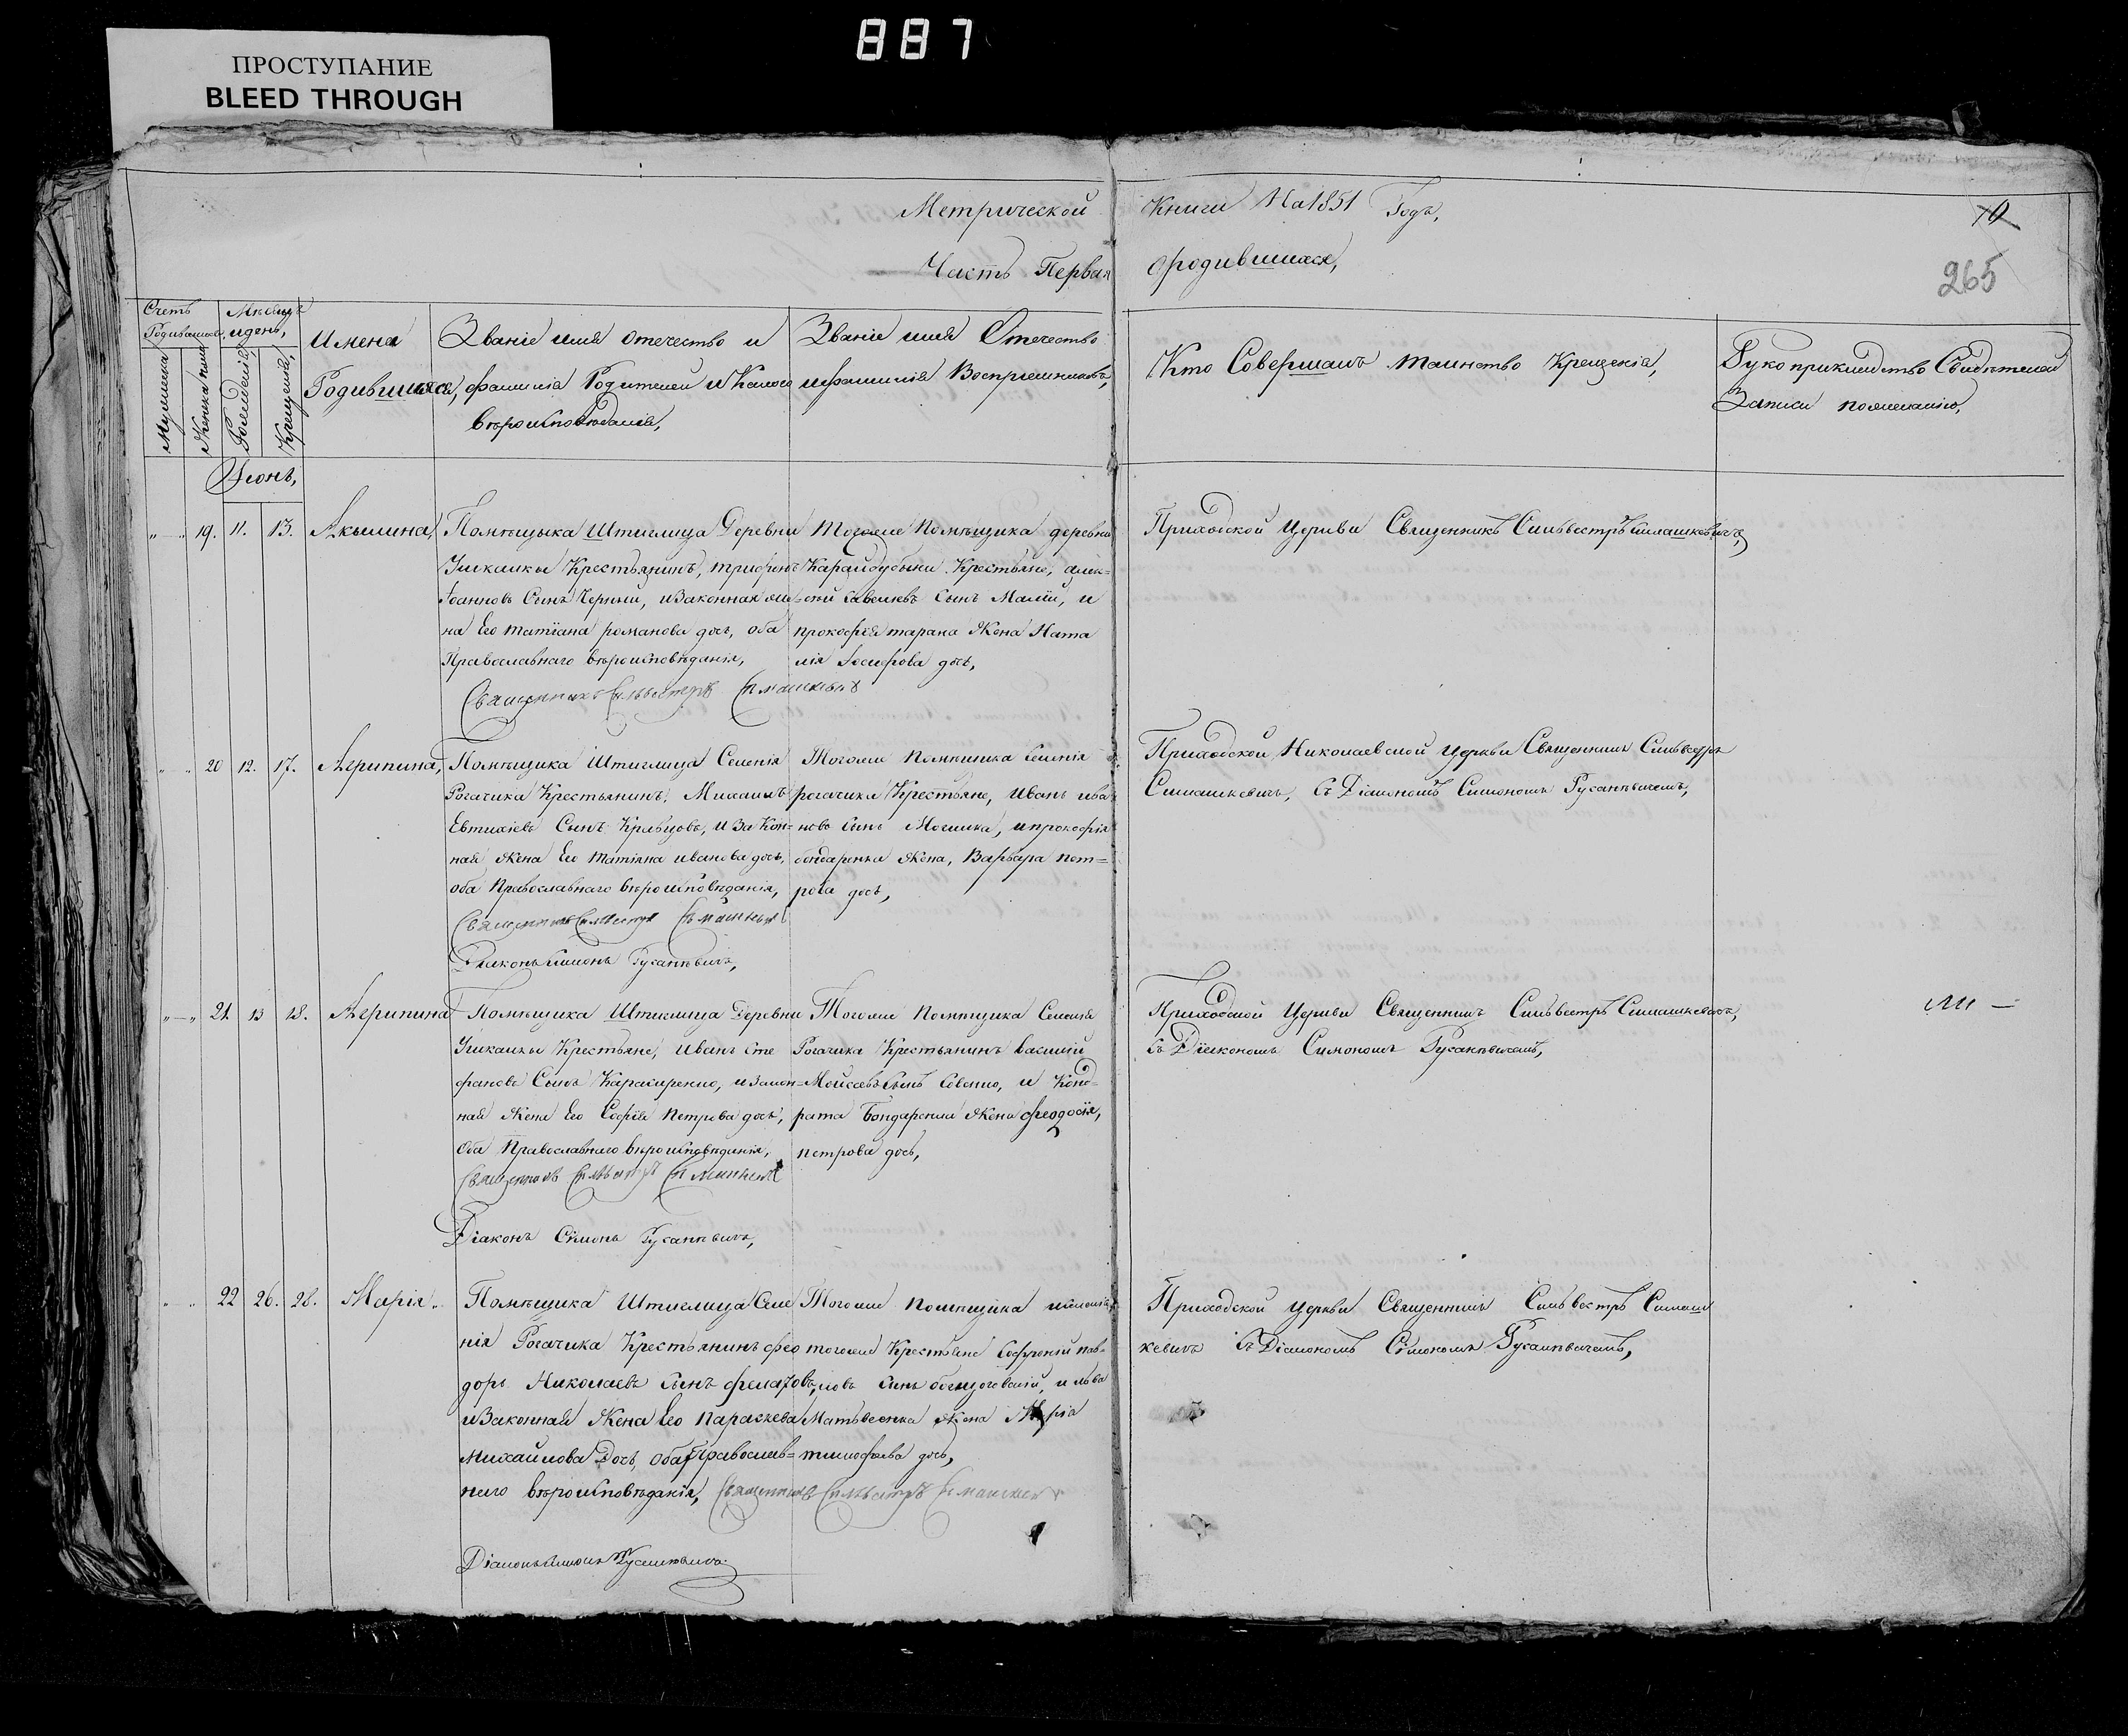 887
ПРОСТУПАНИЕ
BLEED THROUGH
Метрической Книги На 1851 Годъ,
10
Часть Первая ородившихся,
265
Счетъ Родившихся,
Мѣсяцъ и день,
Мужеска
Женска пола
Рожденія,
Крещенія,
Имена Родившихся,
Званіе имя отечество и
фамилія Родителей и Какого
вѣроисповѣданія,
Званіе имя Отечество
и фамилія Воспрiемниковъ,
Кто Совершалъ таинство Крещенія,
Рукоприкладство Свидѣтелей
Записи по желанію,
Іюнь,
" — " 19. 11. 13. Акылина,
Помѣщыка Штиглица Деревни
Ушкалкы Крестьянинъ, трифонъ
Іоанновъ Сынъ Черный, иЗаконная же=
на Его татіана романова дочь, оба
Православнаго вѣроисповѣданія,
Священникъ Сильвестръ Симашкевичъ
Тогоже Помѣщика деревни
Карайдубыни Крестьяне, алек=
сѣй савелиевъ Сынъ Малый, и
прокофія тарана Жена Ната
лія Іосифова дочь,
Приходской Церкви Священникъ Сильвестръ Симашкевичъ,
" " 20 12. 17. Агрипина,
Помѣщика Штиглица Селенія
Рогачика Крестьянинъ, Михаилъ
Евтихіевъ Сынъ Кравцовъ, и Закон=
ная Жена Его татіяна иванова дочь,
оба Православнаго вѣроисповѣданія,
Священникъ Сильвестръ Симашкевичъ
Діаконъ Симонъ Русаневичъ,
Тогоже Помѣщика Селенія
рогачика Крестьяне, Иванъ ива
новъ Сынъ, и прокофія
бондаренка Жена, Варвара пет=
рова дочь,
Приходской Николаевской Церкви Священникъ Сильвестръ
Симашкевичъ, съ Діакономъ Симономъ Русаневичемъ,
" — " 21. 13 18. Агрипина
Помѣщика Штиглица Деревни
Ушкалкы Крестьяне, Иванъ Сте
фановъ Сынъ, и закон=
ная Жена Его Софія Петрова дочь,
Оба Православнаго вѣроисповѣданія,
Священникъ Сильвестръ Симашкевичъ
Діаконъ Симонъ Русаневичъ,
Тогоже Помѣщика Селенія
Рогачика Крестьянинъ василій
Моисеевъ Сынъ, и Конд=
рата Бондаренка Жена феодосія,
петрова дочь,
Приходской Церкви Священникъ Сильвестръ Симашкевичъ,
съ Діякономъ Симономъ Русаневичемъ,
" " 22 26. 28. Марія.
Помѣщика Штиглица Селе
нія Рогачика Крестьянинъ фео
доръ Николаевъ Сынъ филатовъ,
и Законная Жена Его параскева
михайлова Дочь, оба Православ=
наго вѣроисповѣданія, Священникъ Сильвестръ Симашкевичъ
Діаконъ Симонъ Русаневичъ
Тогоже помѣщика и селенія
тогоже Крестьяне Софроній пав=
ловъ Сынъ, и льва
Матвеенка Жена Марія
тимофеева дочь,
Приходской Церкви Священникъ Сильвестръ Симаш
кевичъ съ Діакономъ Симономъ Русаневичемъ,